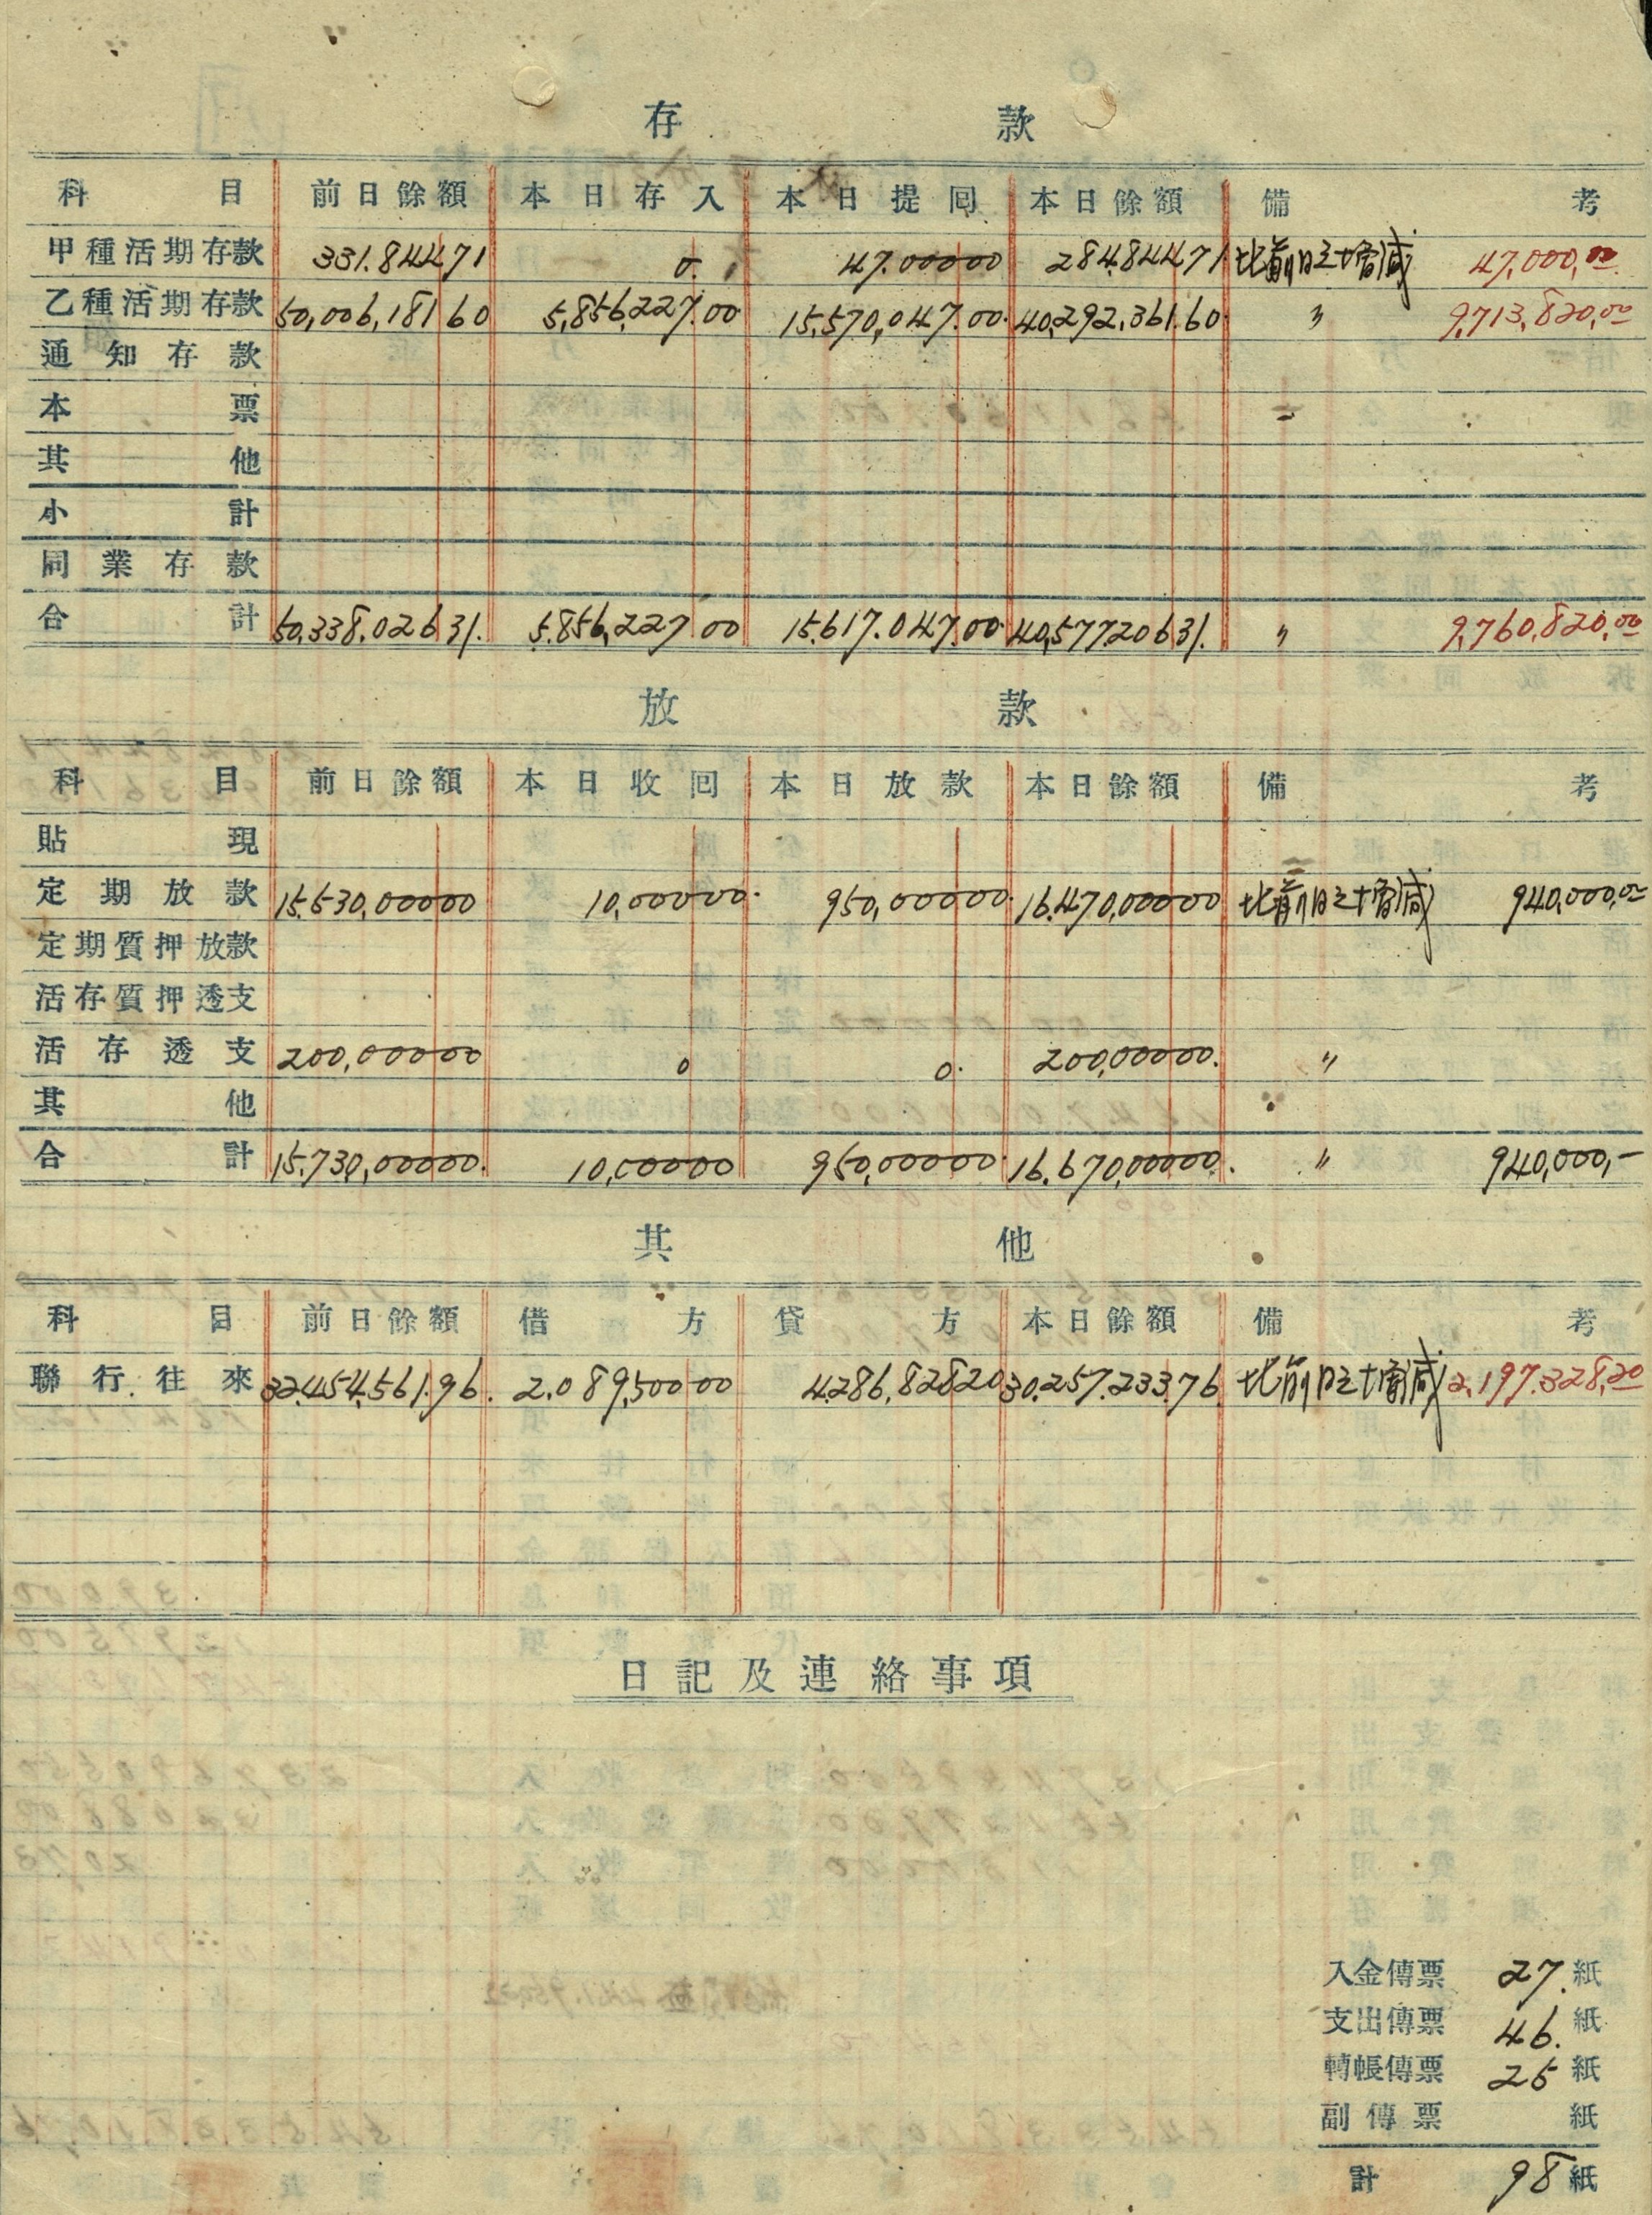 存 款
科目 前日餘額 本日存入 本日提囘 本日餘額 備考
甲種活期存款 331.844 71 0. 47.000 00 284.844 71 比前日之增減 47,000,00
乙種活期存款 50,006,181 60 5,856,227.00 15,570,047.00 40,292,361.60 〃 9,713,820,00
通知存款
本票
其他
小計
同業存款
合計 50,338,026 31. 5,856,227 00 15.617.047.00 40,577,206 31. 〃 9,760,820,00
放 款
科目 前日餘額 本日收囘 本日放款 本日餘額 備考
貼現
定期放款 15,530,000 00 10,000 00 950,000 00 16,470,000 00 比前日之增減 940,000,00
定期質押放款
活存質押透支
活存透支 200,000 00 0 0. 200,000 00. 〃
其他
合計 15.730,000 00. 10,000 00 950,000 00 16.670,000 00. 〃 940,000,—
其 他
科目 前日餘額 借方 貸方 本日餘額 備考
聯行往來 32,454,561.96. 2.089,500 00 4,286,828 20 30,257.233.76 比前日之增減 2,197.328,20
日記及連絡事項
入金傳票 27. 紙
支出傳票 46. 紙
轉帳傳票 25 紙
副傳票 紙
計 98 紙